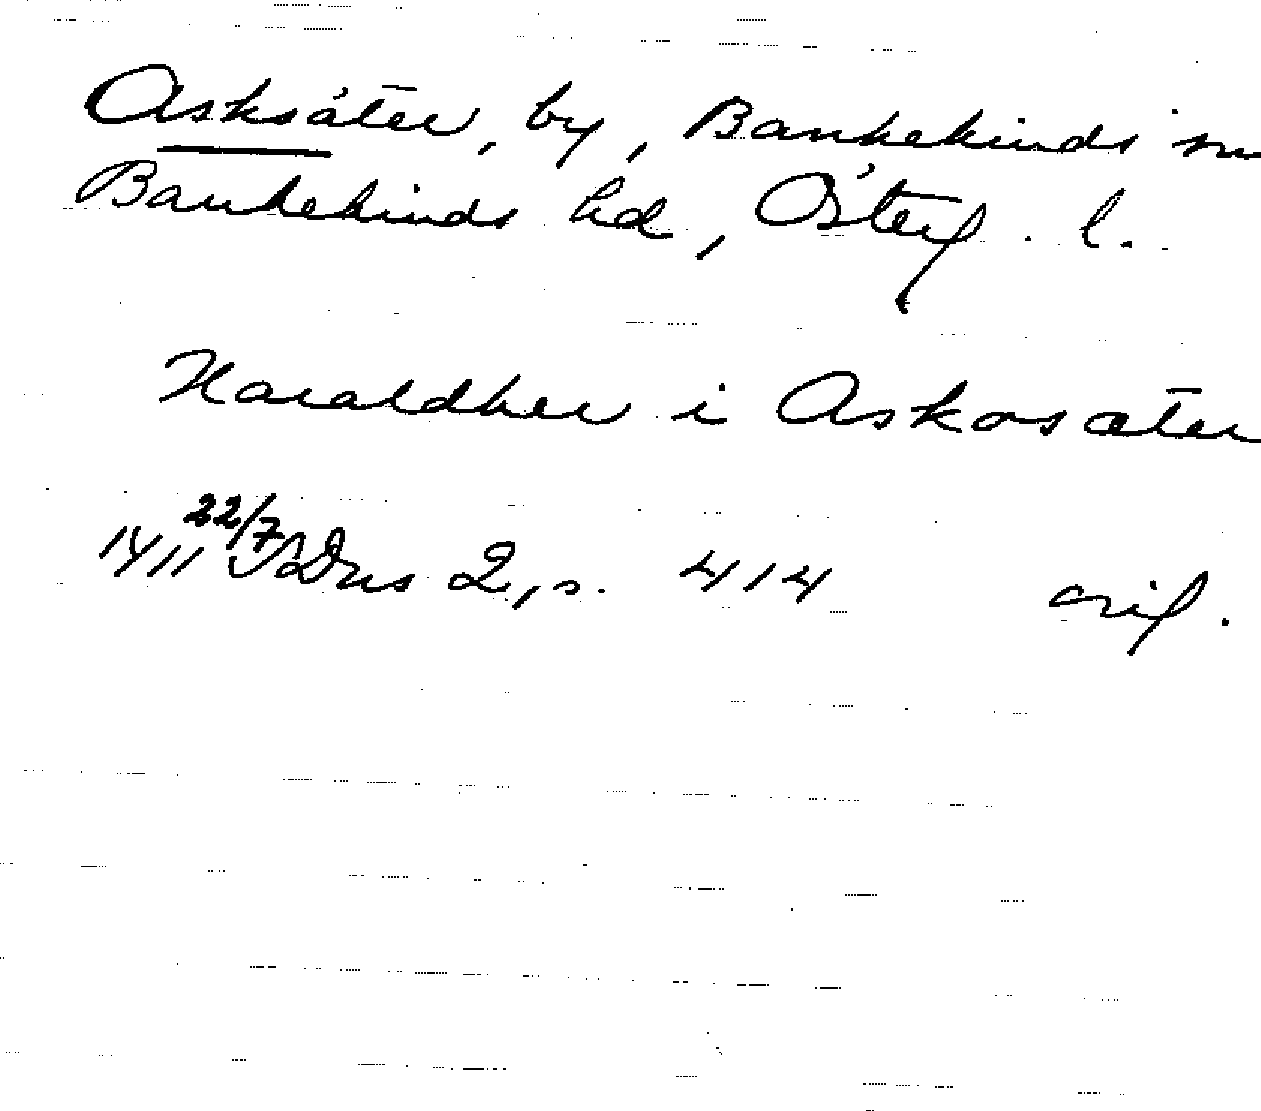 Asksäter, by, Bankekinds sn
Bankekinds hd, Österg. l.
Haraldher i Askosæter
1411 22/7 SDns 2, s. 414 orig.